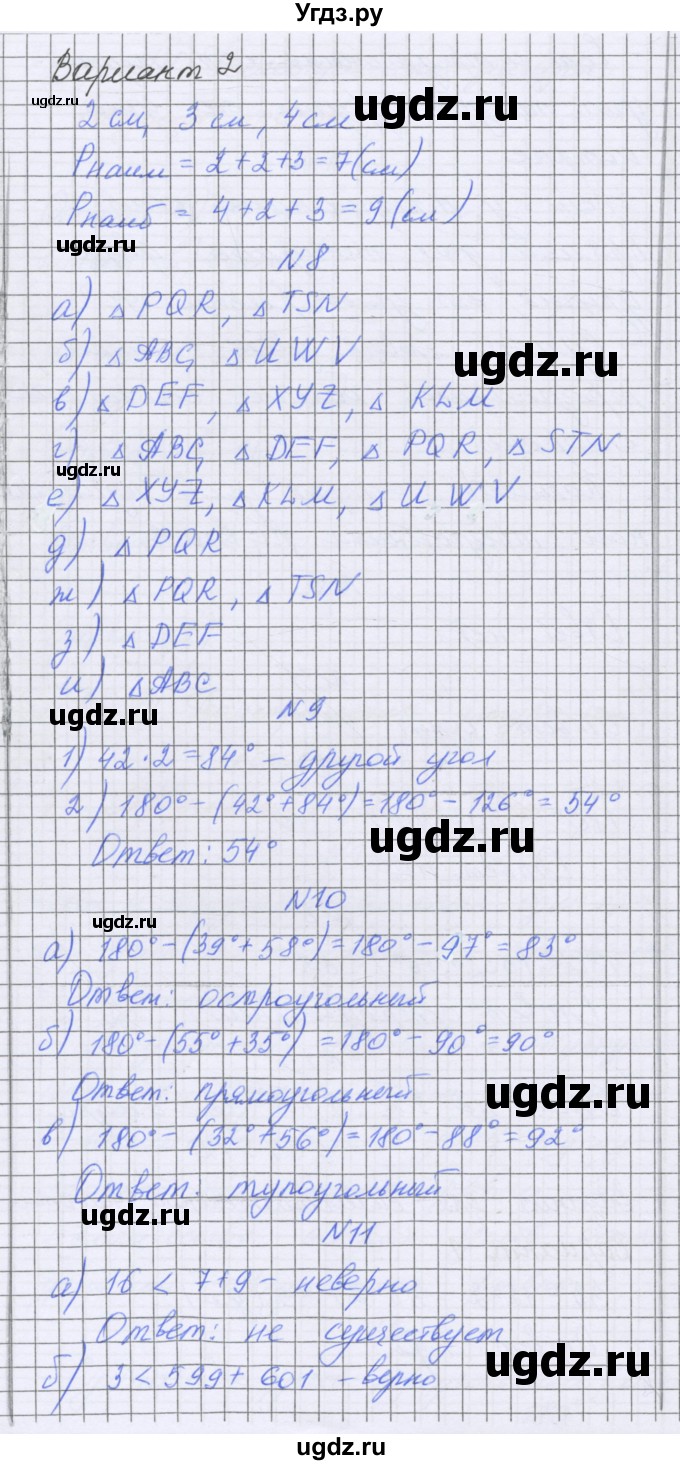 Угдз.ру
Вариант 2
ugdz.ru
2 см, 3 см, 4 см
ugdz.ru
Pнаим = 2+2+3=7(см)
Pнаиб = 4+2+3=9(см)
ugdz.ru
N8
а) △PQR, △TSN
б) △ABC, △UWV
ugdz.ru
в) △DEF, △XYZ, △KLM
г) △ABC, △DEF, △PQR, △STN
ugdz.ru
е) △XYZ, △KLM, △UWV
д) △PQR
ж) △PQR, △TSN
з) △DEF
и) △ABC
ugdz.ru
N9
1) 42·2=84° – другой угол
2) 180°-(42°+84°)=180°-126°=54°
ugdz.ru
Ответ: 54°
N10
ugdz.ru
а) 180°-(39°+58°)=180°-97°=83°
Ответ: остроугольный
б) 180°-(55°+35°)=180°-90°=90°
Ответ: прямоугольный
ugdz.ru
в) 180°-(32°+56°)=180°-88°=92°
Ответ: тупоугольный
ugdz.ru
N11
а) 16 < 7+9 – неверно
Ответ: не существует
ugdz.ru
б) 3 < 599+601 – верно
ugdz.ru